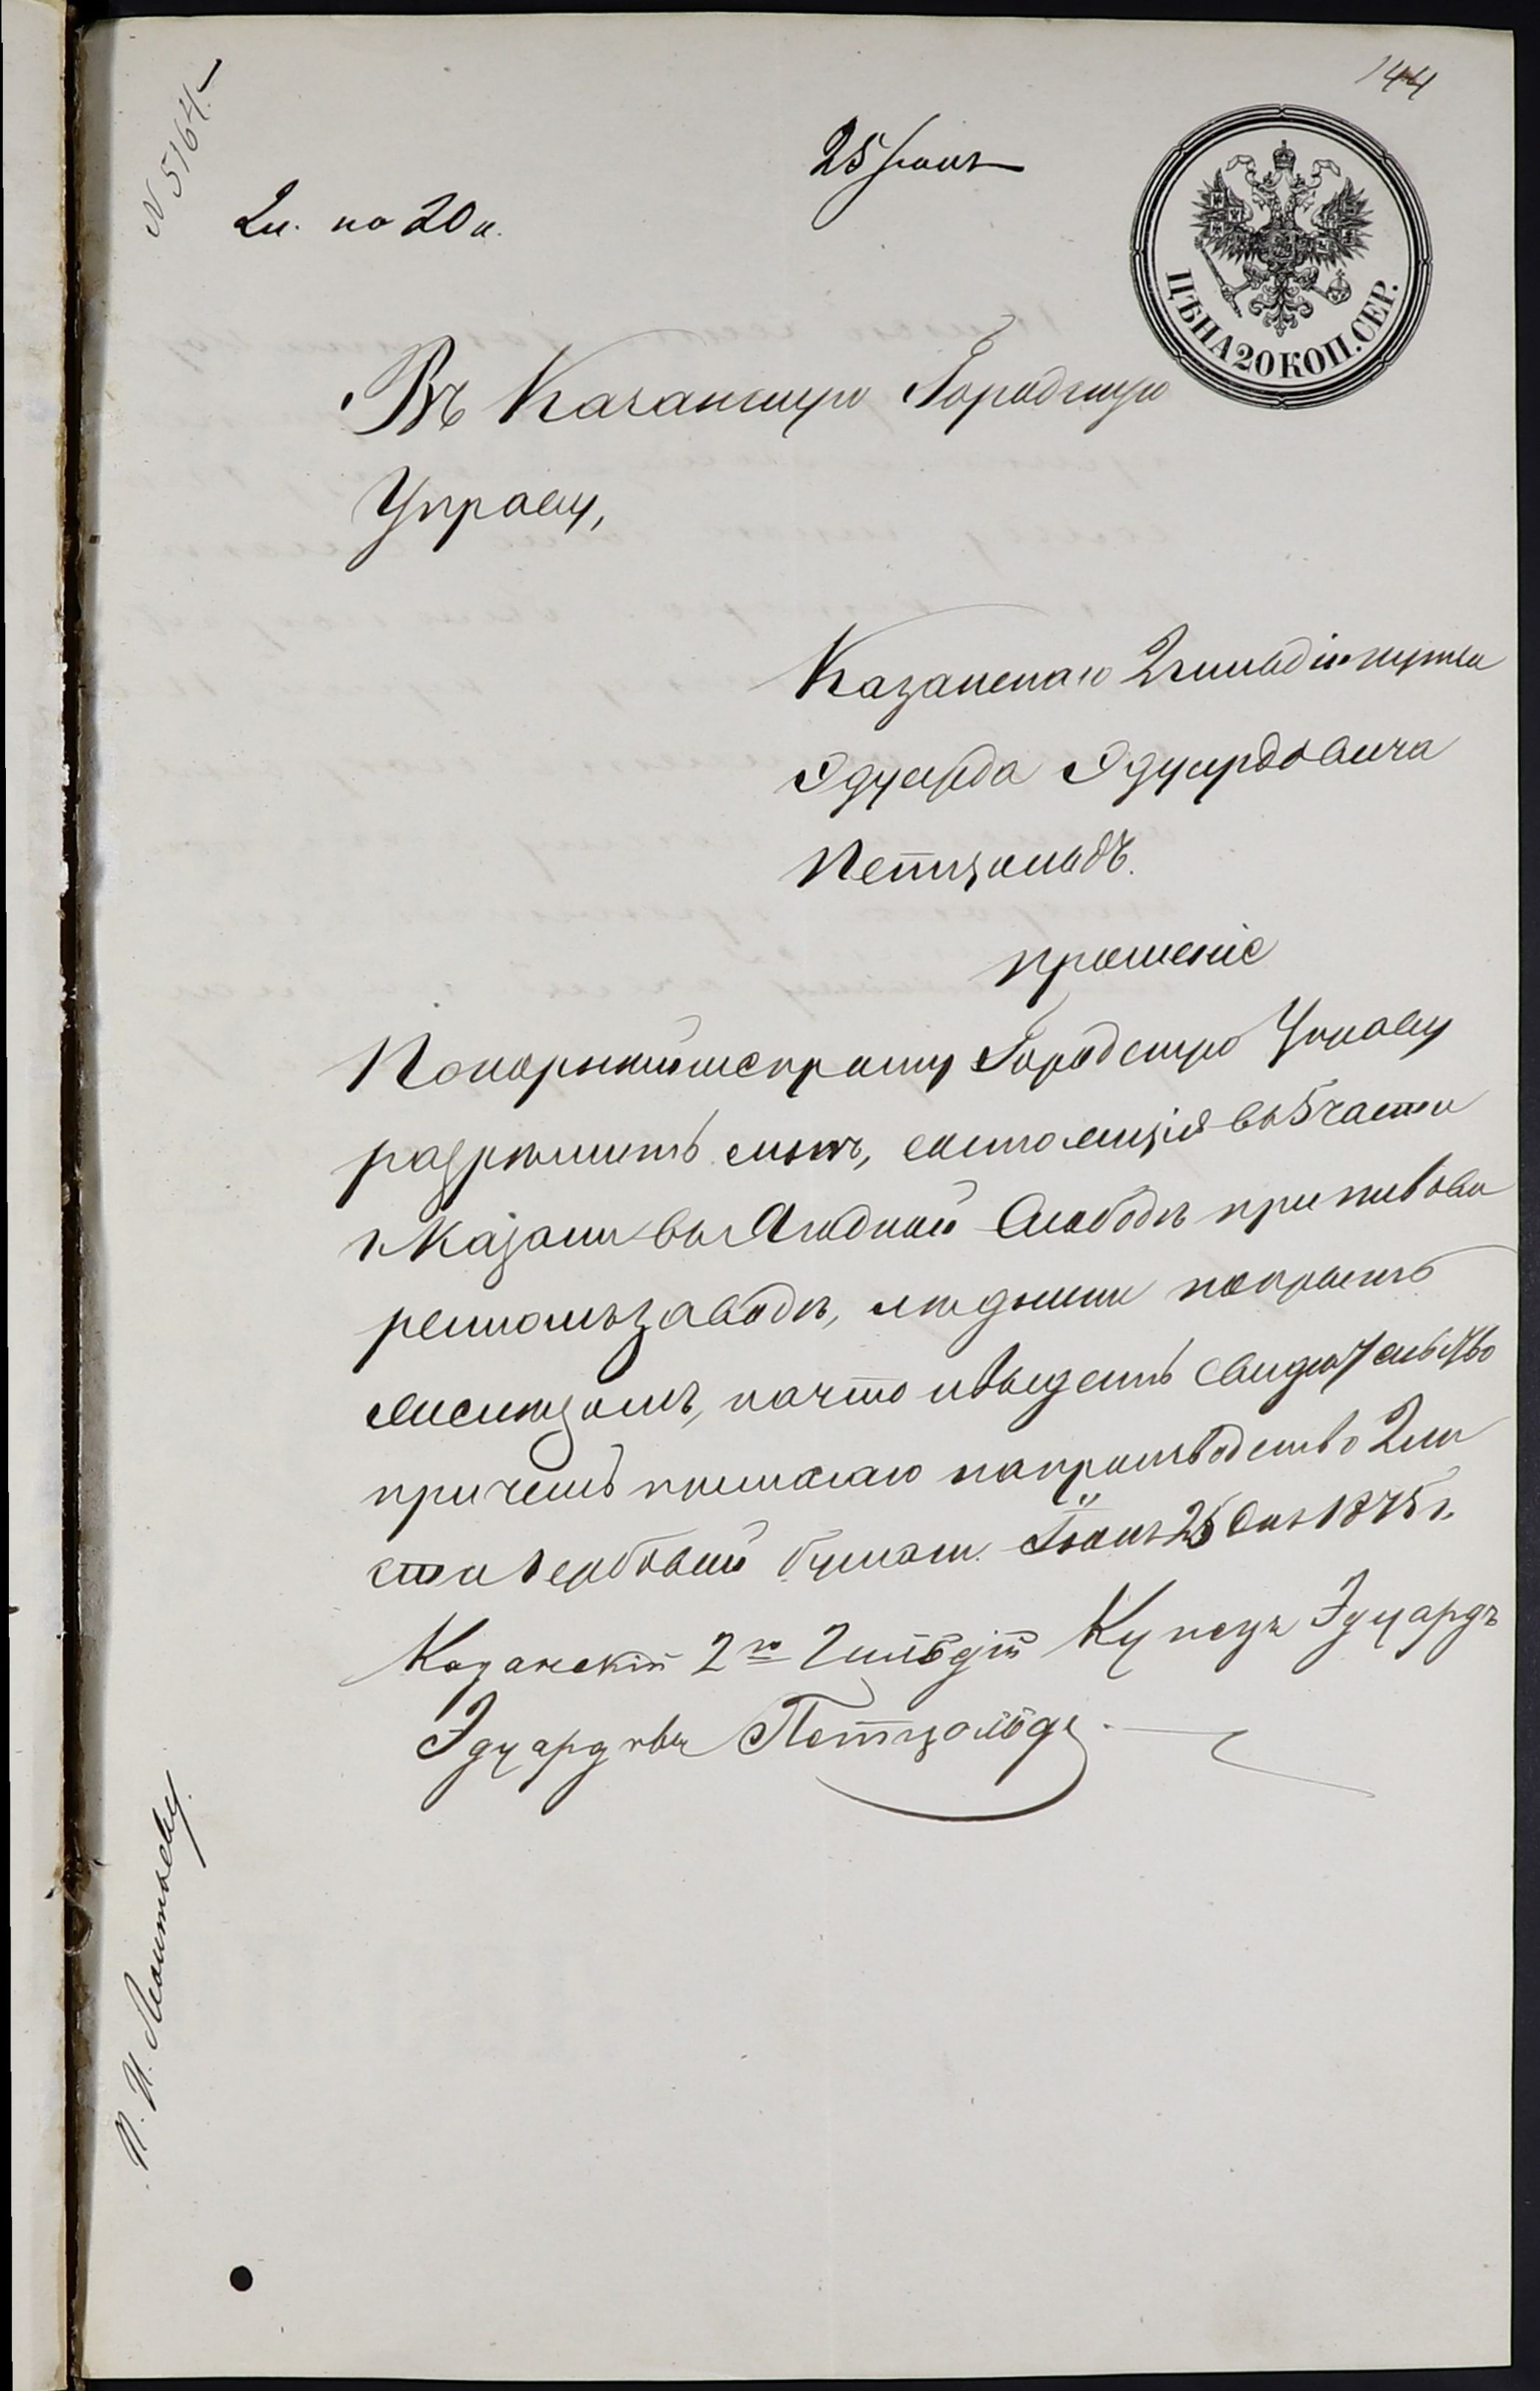 144
№ 5164.
25 Іюня
2 л. по 20 к.
ЦѢНА 20 КОП. СЕР.
Въ Казанскую Городскую
Управу,
Казанскаго 2 гильдіи купца
Эдуарда Эдуардовича
Петцольдъ.
прошеніе
Покорнѣйше прошу Городскую Управу
разрѣшить мнѣ, состоящія въ 5 части
г. Казани въ Ягодной Слободѣ при пивова
реномъ заводѣ, покрыть
на что и выдать свидѣтельство
причемъ прилагаю на производство 2 ли
ста гербовой бумаги. Іюня 25 дня 1875 г.
Казанскій 2й Гильдіи Купецъ Эдуардъ
Эдуардовъ Петцольдъ.
П. И. Леонтьеву.